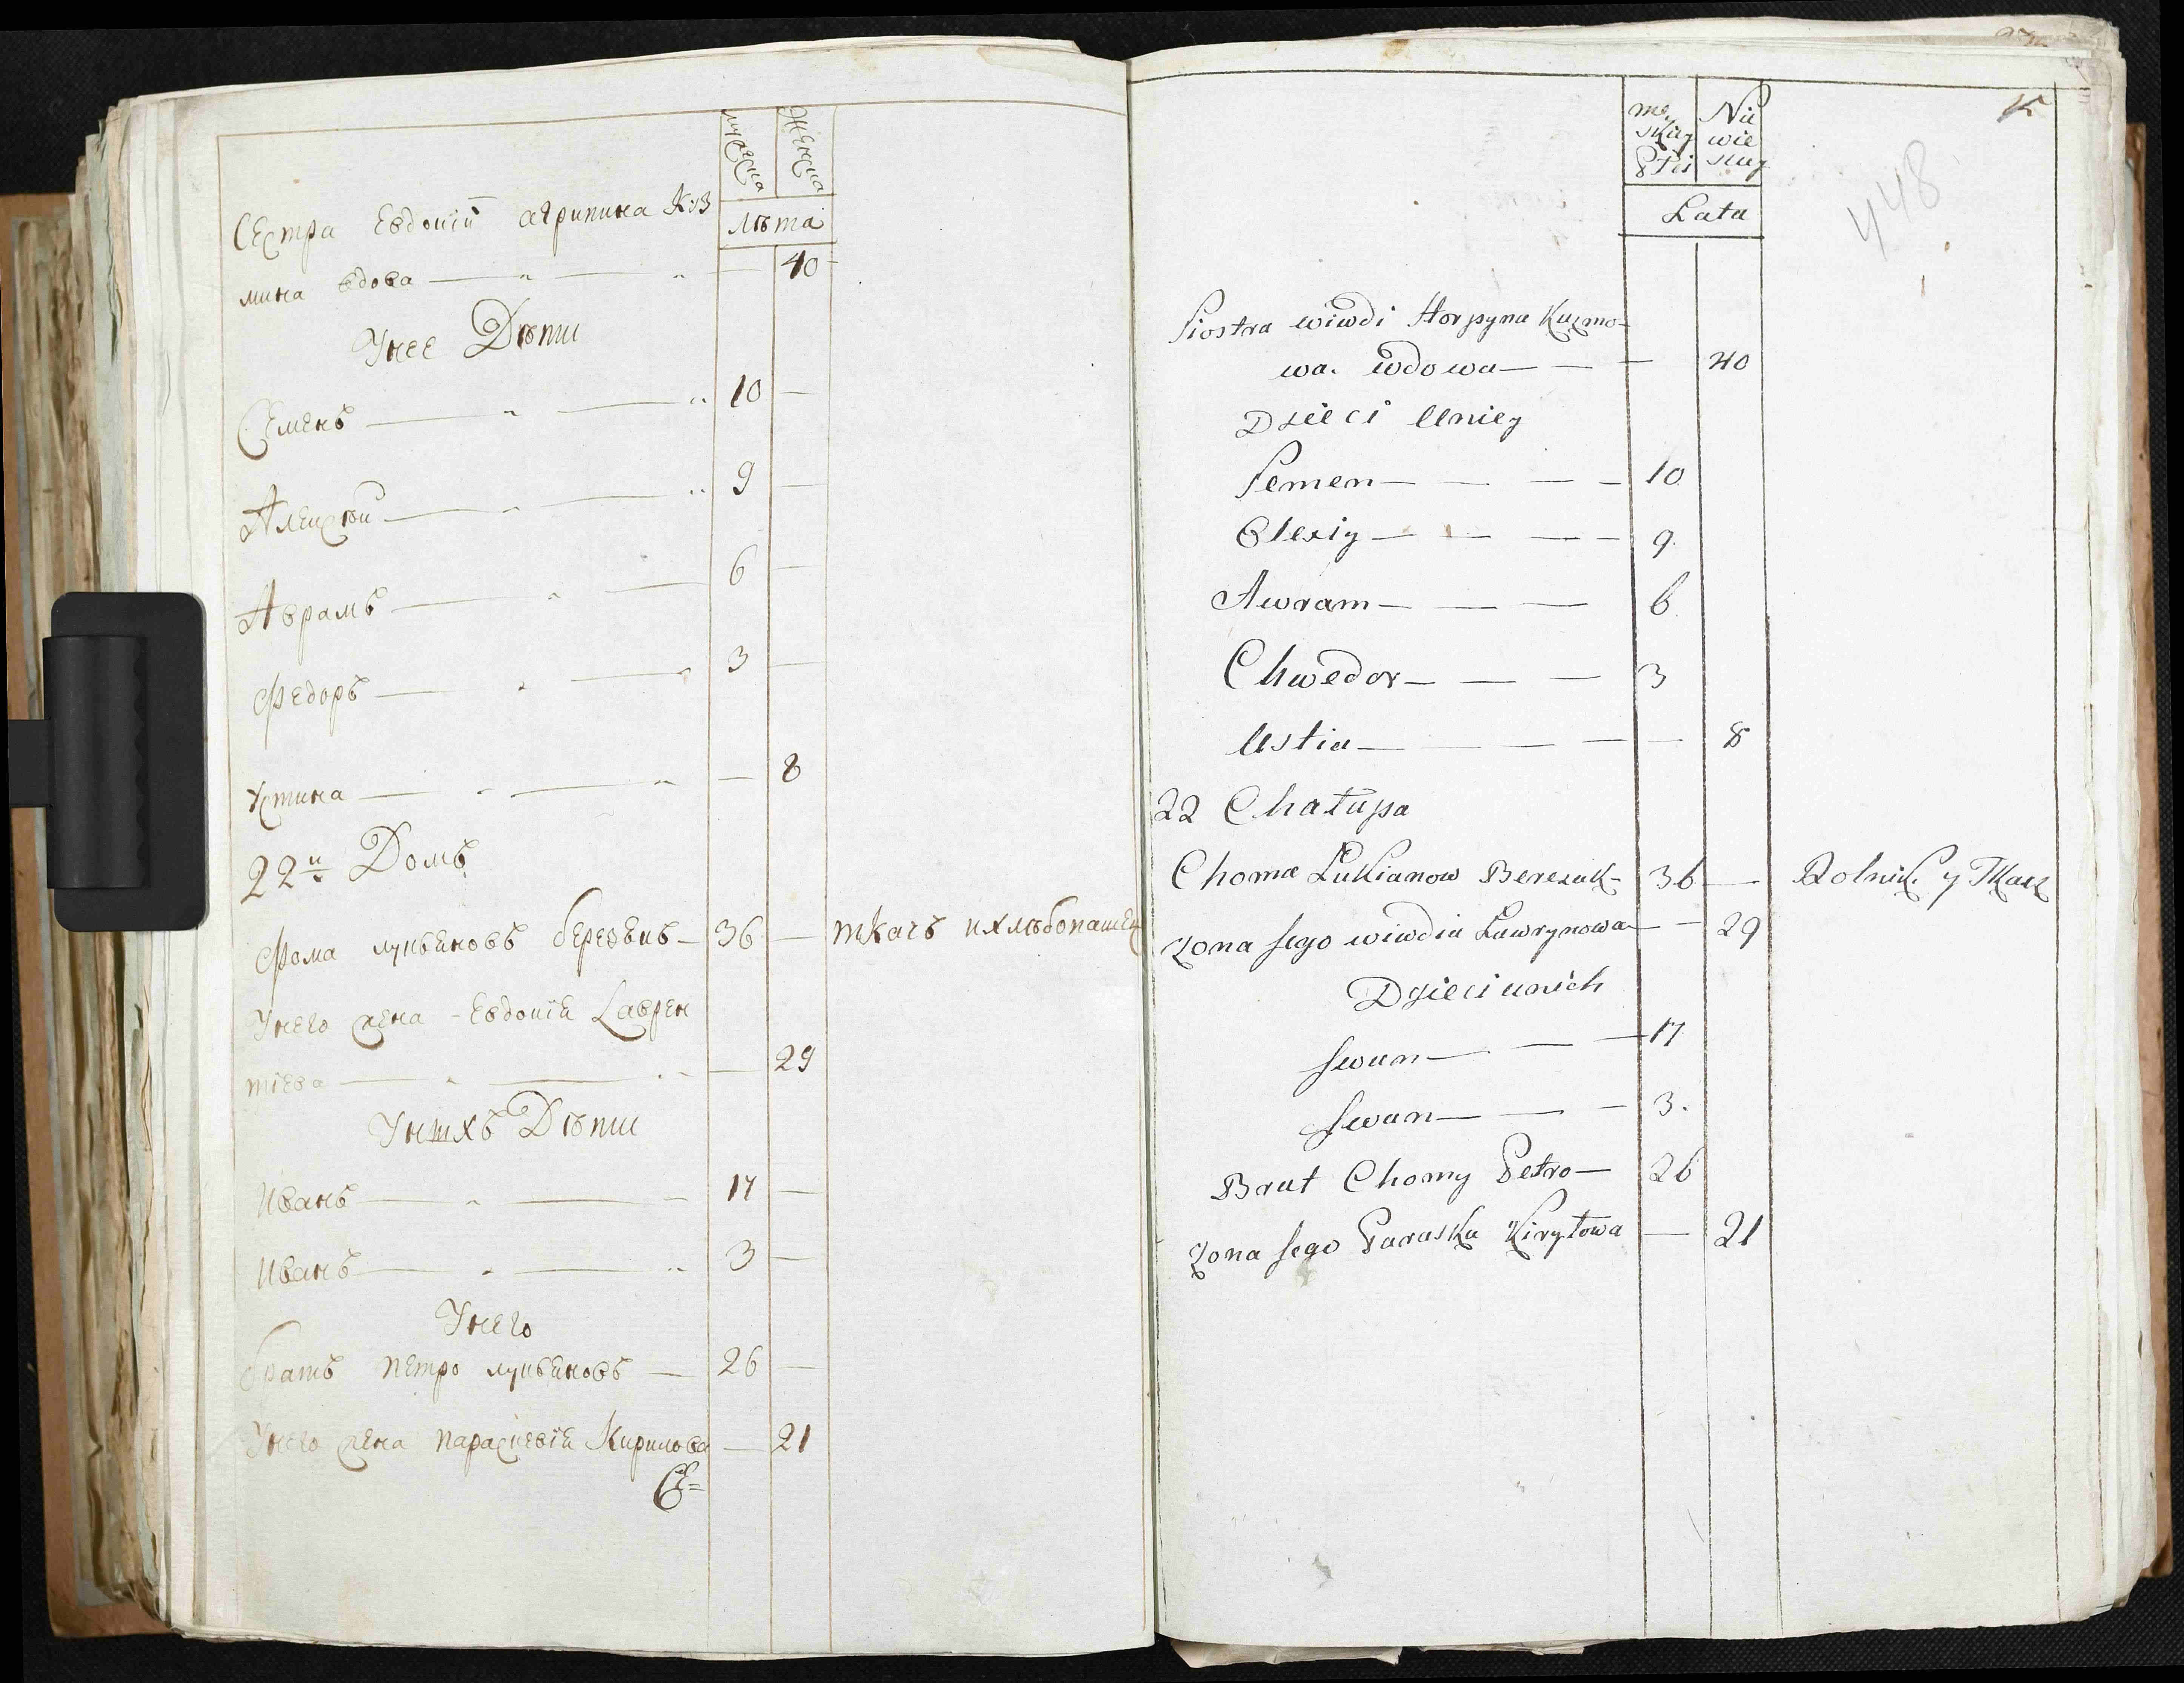 мужеска женска
лѣта
Сестра Евдокіи агрипина Куз
мина вдова — — — 40
Унее Дѣти
Семенъ — — 10 —
Алексѣй — — 9 —
Аврамъ — — 6 —
Федоръ — — 3 —
Устина — — — 8
22й Домъ
Фома лукьяновъ березьвкъ — 36 — ткачъ и хлѣбопашец
Унего жена Евдокія Лаврен
тіева — — — 29
Унихъ Дѣти
Иванъ — — 17 —
Иванъ — — 3 —
Унего
братъ петро лукьяновъ — 26 —
Унего жена параскевія Кирилова — 21
Се=
męskiey płci Nie wie skiey
Lata
15
448
Siostra wiwdi Horpyna Kuzmo-
wa. wdowa — — — 40
Dzieci Uniey
Semen — — — 10
Olexiy — — — 9.
Awram — — — 6.
Chwedor — — — 3
Ustia — — — — 8
22 Chałupa
Choma Lukianow Berezuk — 36 — Rolnik y Tkacz
zona Jego wiwdia Lawrynowa — — 29
Dzieci unich
Iwan — — — 17
Iwan — — — 3.
Brat Chomy Petro — 26
zona Jego Paraska Kiryłowa — 21